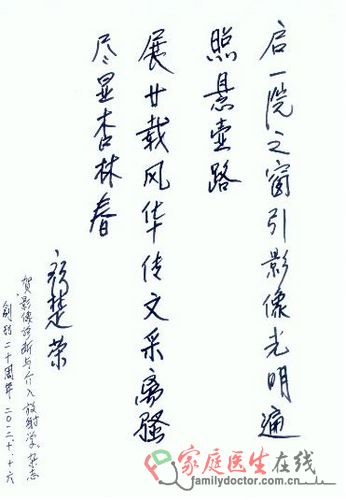 启一院之窗引影像光明遍
照悬壶路
展廿载风华传文采离骚
尽显杏林春
楚荣
贺影像诊断与介入放射学杂志
创刊二十周年
家庭医生在线
familydoctor.com.cn